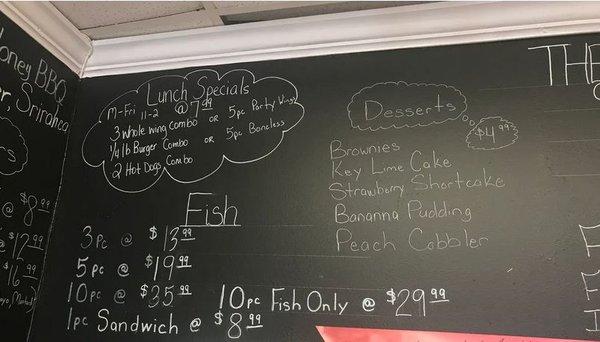 Honey BBQ
er, Sriracha
@ $8.99
@ $12.99
$16.99
Lunch Specials
M-Fri 11-2 @ 7.99
3 whole wing combo or 5pc Party Wing
1/4 lb Burger Combo or 5pc Boneless
2 Hot Dogs Combo
Fish
3pc @ $13.99
5pc @ $19.99
10pc @ $35.99
10pc Fish Only @ $29.99
1pc Sandwich @ $8.99
Desserts
$4.99
Brownies
Key Lime Cake
Strawberry Shortcake
Bananna Pudding
Peach Cobbler
THE